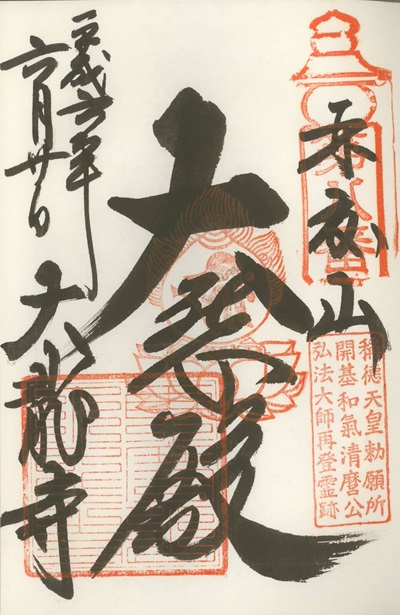 再度山
稱徳天皇勅願所
開基和氣清麿公
弘法大師再登霊跡
大悲殿
平成六年
六月廿日
大龍寺